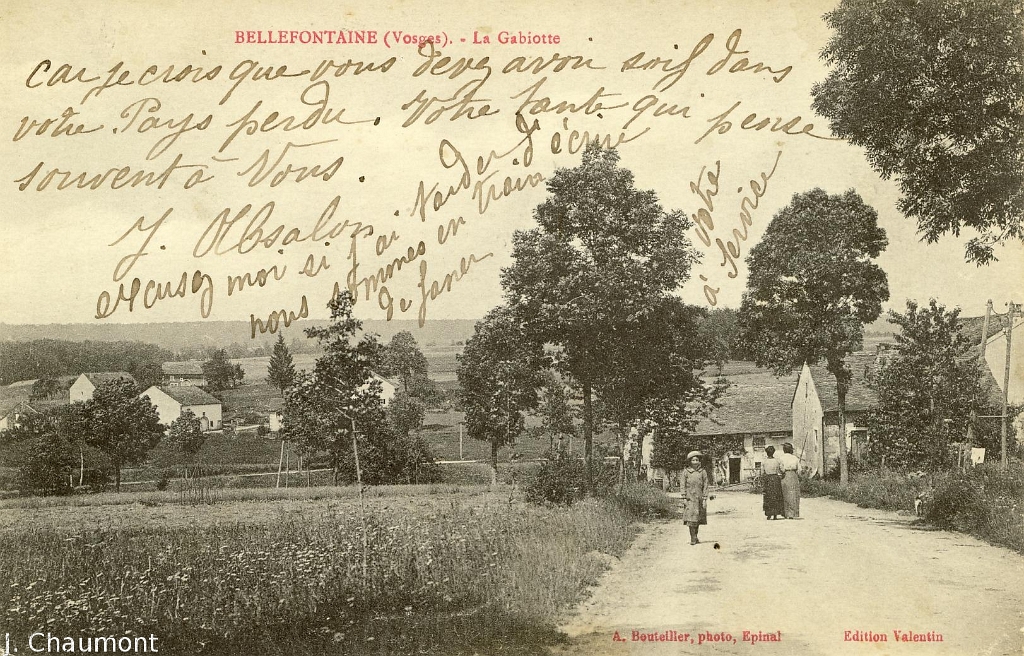 BELLEFONTAINE (Vosges). - La Gabiotte
car je crois que vous devez avoir soif dans
votre Pays perdu. Votre tante qui pense
souvent à Vous.
J. Absalon
excusez moi si j'ai tarder d'écrire
nous sommes en train
de faner
à votre
service
A. Bouteiller, photo, Epinal
Edition Valentin
J. Chaumont